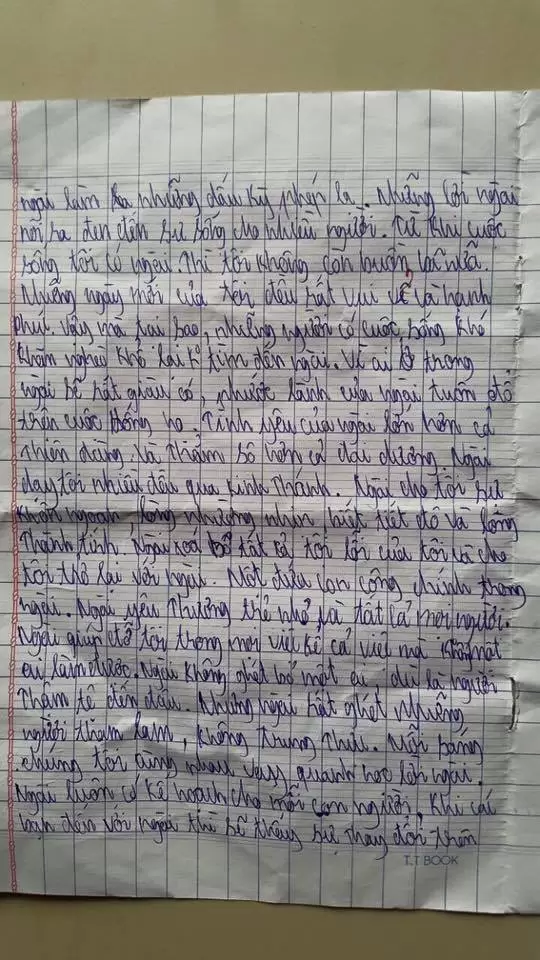 ngài làm ra những dấu kỳ phép lạ. Những lời ngài
nói ra đem đến sự sống cho nhiều người. Từ khi cuộc
sống tôi có ngài. Thì tôi không còn buồn bã nữa.
Những ngày mới của tôi đều rất vui vẻ và hạnh
phúc. Vậy mà tại sao, những người có cuộc sống khó
khăn nghèo khổ lại k tìm đến ngài. Vì ai ở trong
ngài sẽ rất giàu có, phước lành của ngài tuôn đổ
trên cuộc sống họ. Tình yêu của ngài lớn hơn cả
thiên đàng. Và thẳm sô hơn cả đại dương. Ngài
dạy tôi nhiều đều qua kinh Thánh. Ngài cho tôi sự
khôn ngoan, lòng nhường nhịn biết tiết độ và lòng
Thành kính. Ngài xoá bỏ tất cả tội lỗi của tôi và cho
tôi trở lại với ngài. Một đứa con công chính trong
ngài. Ngài yêu Thương trẻ nhỏ và tất cả mọi người.
Ngài giúp đỡ tôi trong mọi việc kể cả việc mà không một
ai làm được. Ngài không ghét bỏ một ai. dù là người
Thậm tệ đến đâu. Nhưng ngài rất ghét những
người tham lam, không trung Thực. Mỗi sáng
chúng tôi cùng nhau vây quanh học lời ngài.
Ngài luôn có kế hoạch cho mỗi con người. Khi các
bạn đến với ngài thì sẽ thấy sự Thay đổi trên
T.T BOOK